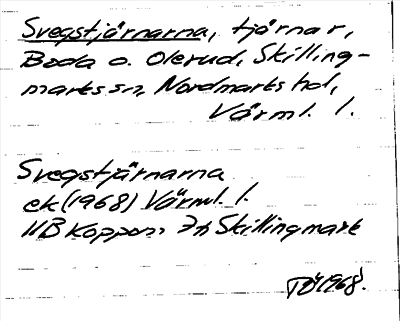 Svegstjärnarna, tjärnar,
Boda o. Olerud, Skilling-
marks sn, Nordmarks hd,
Värml. l.
Svegstjärnarna
ek (1968) Värml. l.
11B Koppom 7h Skillingmark
1968